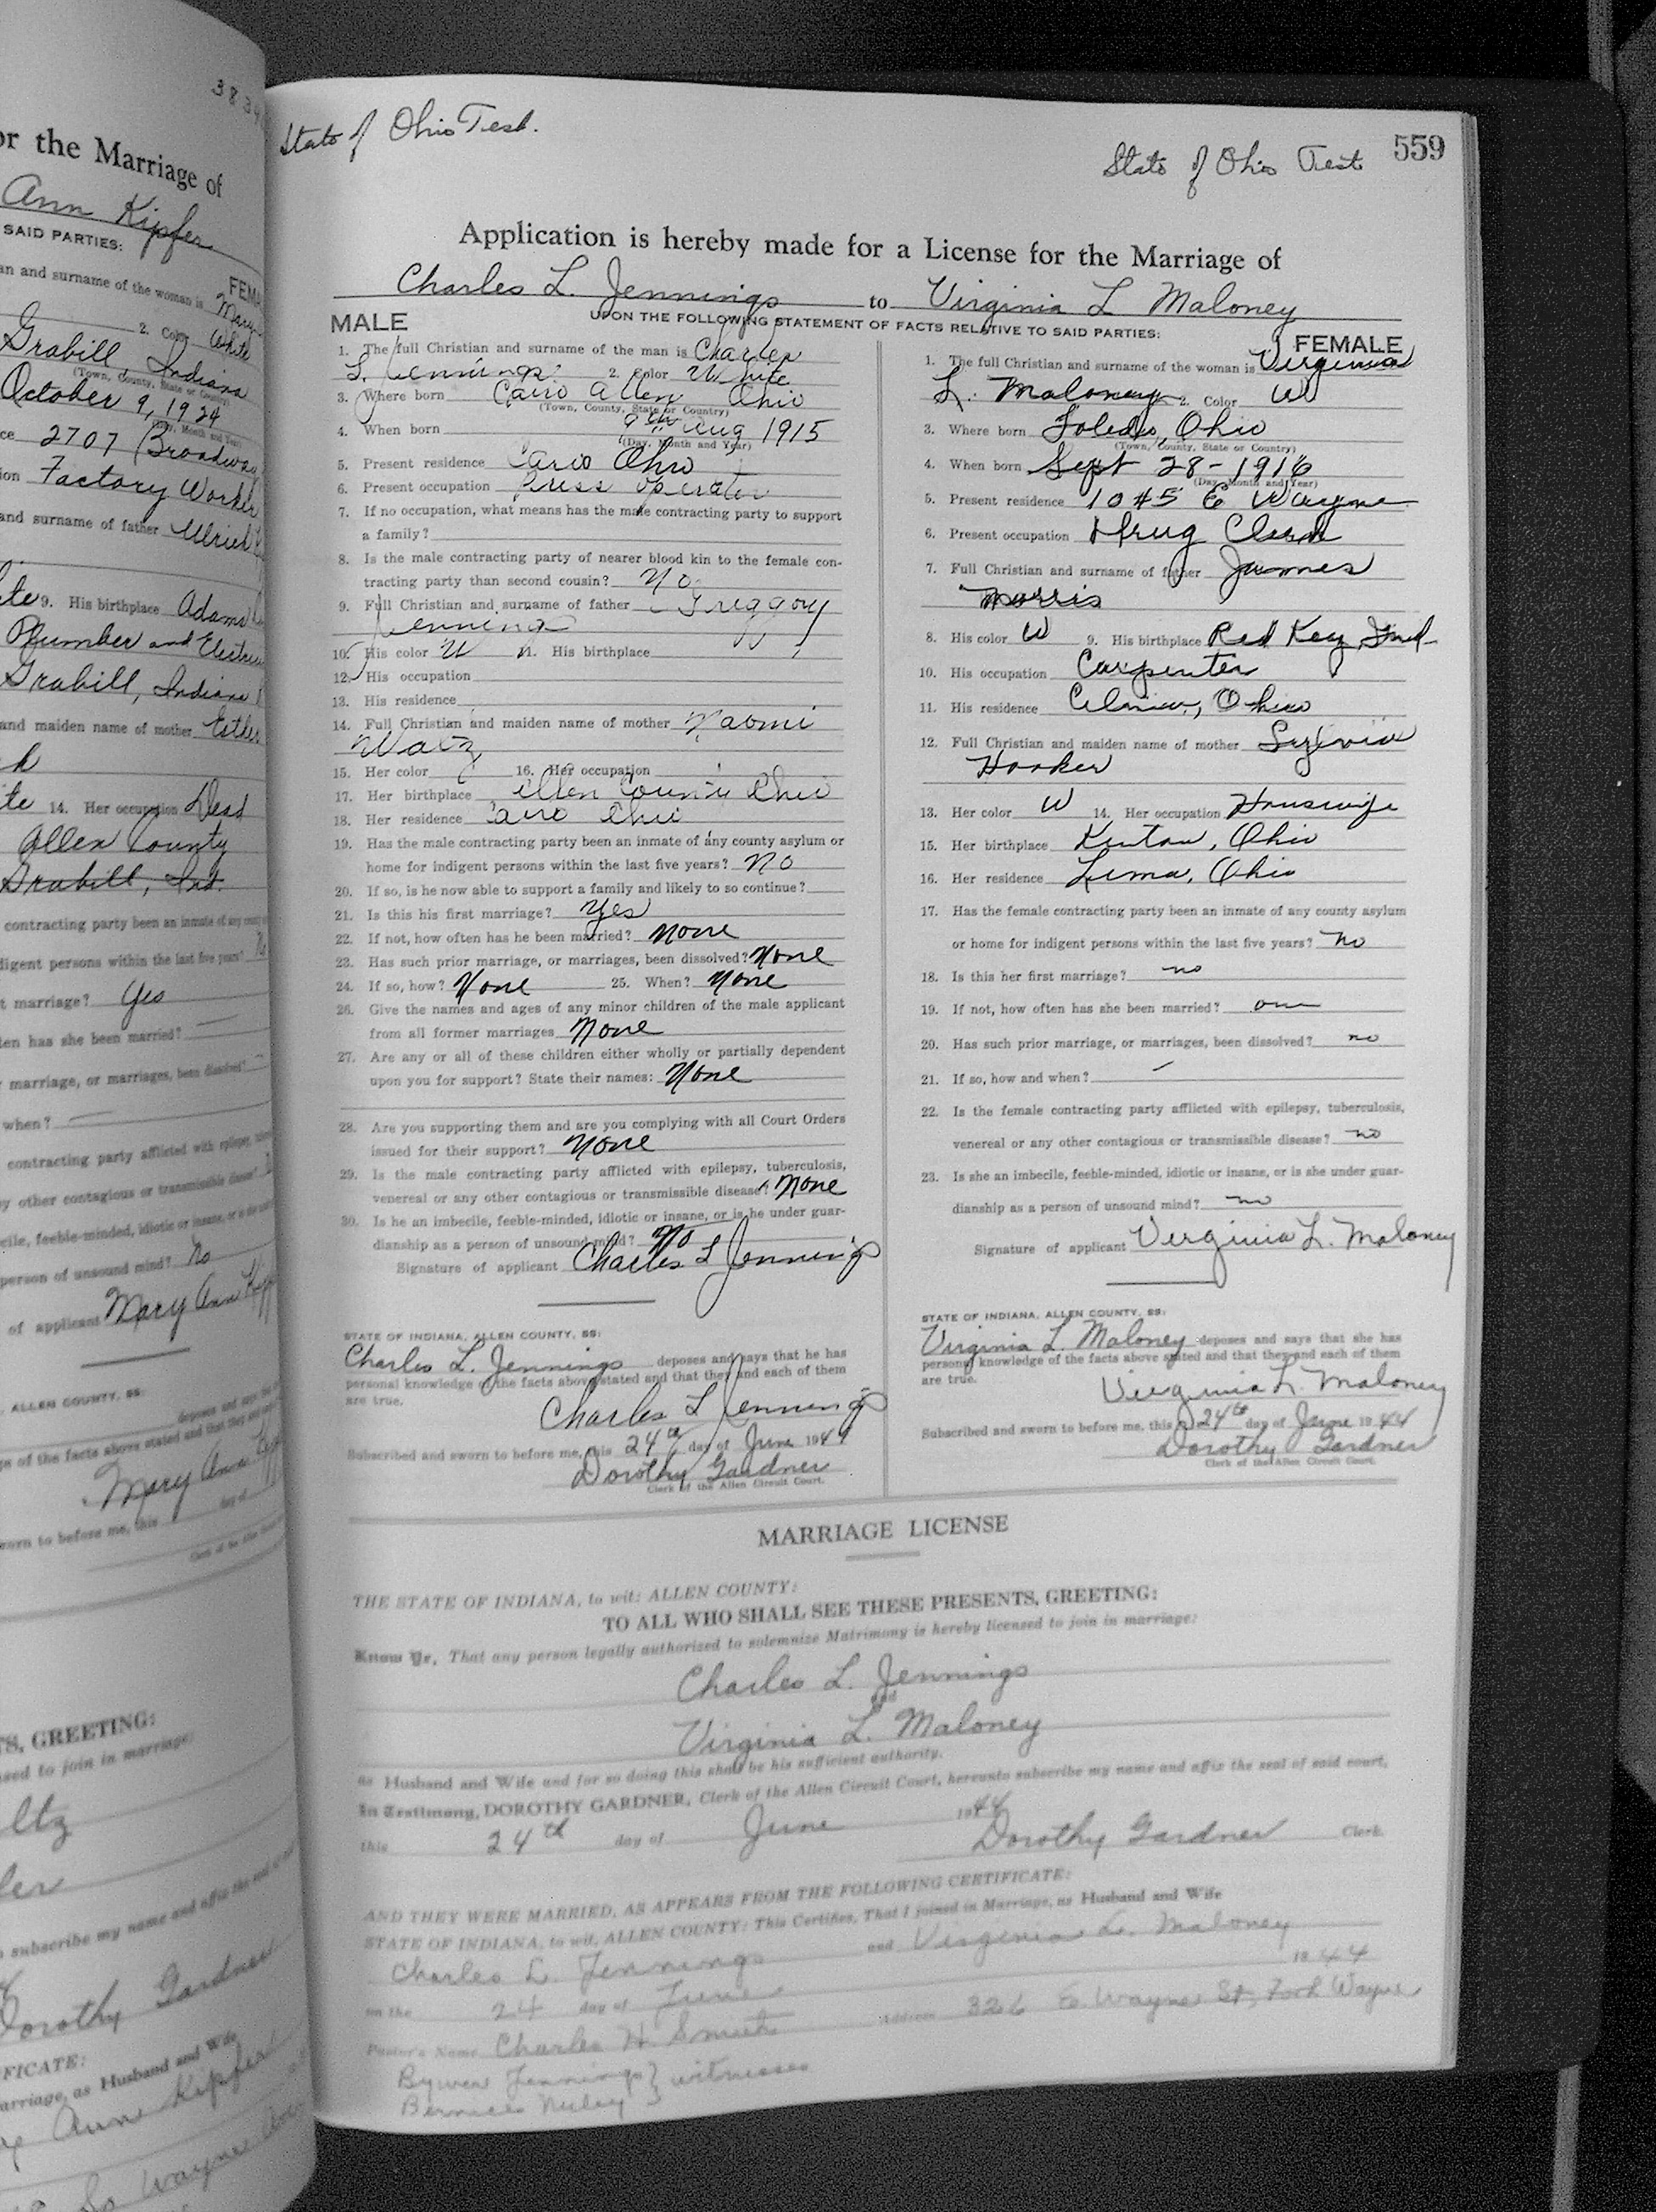 3834
or the Marriage of
Ann Kipfer
SAID PARTIES:
FEMA
an and surname of the woman is Mary
2. Color White
Grabill, Indiana
(Town, County, State or Country)
October 9, 1924
ce 2707 Broadway
ion Factory Worker
and surname of father Ulrich
9. His birthplace Adams
Plumber and
Grabill, Indiana
and maiden name of mother Esther
14. Her occupation Dead
Allen County
Grabill, Ind.
contracting party been an inmate of any
digent persons within the last five years?
t marriage? Yes
ten has she been married?
marriage, or marriages, been dissolved?
when?
contracting party afflicted with epilepsy,
y other contagious or transmissible disease?
cile, feeble-minded, idiotic or insane, or is she
person of unsound mind? No
of applicant Mary Ann
, ALLEN COUNTY, SS:
deposes and says
ge of the facts above stated and that they and
Mary Ann
worn to before me, this day of
TS, GREETING:
sed to join in marriage:
ltz
ler
subscribe my name and affix the seal of
Dorothy Gardner
FICATE:
arriage, as Husband and Wife
Ann Kipfer
So Wayne
State of Ohio Test.
State of Ohio Test 559
Application is hereby made for a License for the Marriage of
Charles L. Jennings to Virginia L Maloney
UPON THE FOLLOWING STATEMENT OF FACTS RELATIVE TO SAID PARTIES:
MALE
1. The full Christian and surname of the man is Charles
L. Jennings 2. Color White
3. Where born Cairo Allen Ohio
(Town, County, State or Country)
4. When born 9th Aug 1915
(Day, Month and Year)
5. Present residence Cario Ohio
6. Present occupation Press operator
7. If no occupation, what means has the male contracting party to support
a family?
8. Is the male contracting party of nearer blood kin to the female con-
tracting party than second cousin? No
9. Full Christian and surname of father Greggory
Jennings
10. His color W 11. His birthplace
12. His occupation
13. His residence
14. Full Christian and maiden name of mother Naomi
15. Her color 16. Her occupation
17. Her birthplace Allen County Ohio
18. Her residence Cairo Ohio
19. Has the male contracting party been an inmate of any county asylum or
home for indigent persons within the last five years? No
20. If so, is he now able to support a family and likely to so continue?
21. Is this his first marriage? Yes
22. If not, how often has he been married? None
23. Has such prior marriage, or marriages, been dissolved? None
24. If so, how? None 25. When? None
26. Give the names and ages of any minor children of the male applicant
from all former marriages None
27. Are any or all of these children either wholly or partially dependent
upon you for support? State their names: None
28. Are you supporting them and are you complying with all Court Orders
issued for their support? None
29. Is the male contracting party afflicted with epilepsy, tuberculosis,
venereal or any other contagious or transmissible disease? None
30. Is he an imbecile, feeble-minded, idiotic or insane, or is he under guar-
dianship as a person of unsound mind? No
Signature of applicant Charles L Jennings
STATE OF INDIANA, ALLEN COUNTY, SS:
Charles L. Jennings deposes and says that he has
personal knowledge of the facts above stated and that they and each of them
are true.
Charles L Jennings
Subscribed and sworn to before me, this 24th day of June 1944
Dorothy Gardner
Clerk of the Allen Circuit Court.
FEMALE
1. The full Christian and surname of the woman is Virginia
L. Maloney 2. Color W
3. Where born Toledo, Ohio
(Town, County, State or Country)
4. When born Sept 28 - 1916
(Day, Month and Year)
5. Present residence 1045 E Wayne
6. Present occupation Drug Clerk
7. Full Christian and surname of father James
Morris
8. His color W 9. His birthplace Red Key, Ind
10. His occupation Carpenter
11. His residence Celina, Ohio
12. Full Christian and maiden name of mother Sylvia
Hooker
13. Her color W 14. Her occupation Housewife
15. Her birthplace Kenton, Ohio
16. Her residence Lima, Ohio
17. Has the female contracting party been an inmate of any county asylum
or home for indigent persons within the last five years? no
18. Is this her first marriage? no
19. If not, how often has she been married? one
20. Has such prior marriage, or marriages, been dissolved? no
21. If so, how and when?
22. Is the female contracting party afflicted with epilepsy, tuberculosis,
venereal or any other contagious or transmissible disease? no
23. Is she an imbecile, feeble-minded, idiotic or insane, or is she under guar-
dianship as a person of unsound mind? no
Signature of applicant Virginia L. Maloney
STATE OF INDIANA, ALLEN COUNTY, SS:
Virginia L. Maloney deposes and says that she has
personal knowledge of the facts above stated and that they and each of them
are true.
Virginia L. Maloney
Subscribed and sworn to before me, this 24th day of June 1944
Dorothy Gardner
Clerk of the Allen Circuit Court.
MARRIAGE LICENSE
THE STATE OF INDIANA, to wit: ALLEN COUNTY:
TO ALL WHO SHALL SEE THESE PRESENTS, GREETING:
Know Ye, That any person legally authorized to solemnize Matrimony is hereby licensed to join in marriage:
Charles L. Jennings
and
Virginia L. Maloney
as Husband and Wife and for so doing this shall be his sufficient authority.
In Testimony, DOROTHY GARDNER, Clerk of the Allen Circuit Court, hereunto subscribe my name and affix the seal of said court,
this 24th day of June 1944
Dorothy Gardner Clerk
AND THEY WERE MARRIED, AS APPEARS FROM THE FOLLOWING CERTIFICATE:
STATE OF INDIANA, to wit, ALLEN COUNTY: This Certifies, That I joined in Marriage, as Husband and Wife
Charles L. Jennings and Virginia L. Maloney
on the 24 day of June 1944
Pastor's Name Charles H. Smith Address 326 E. Wayne St, Fort Wayne
Jennings } witnesses
Bernice